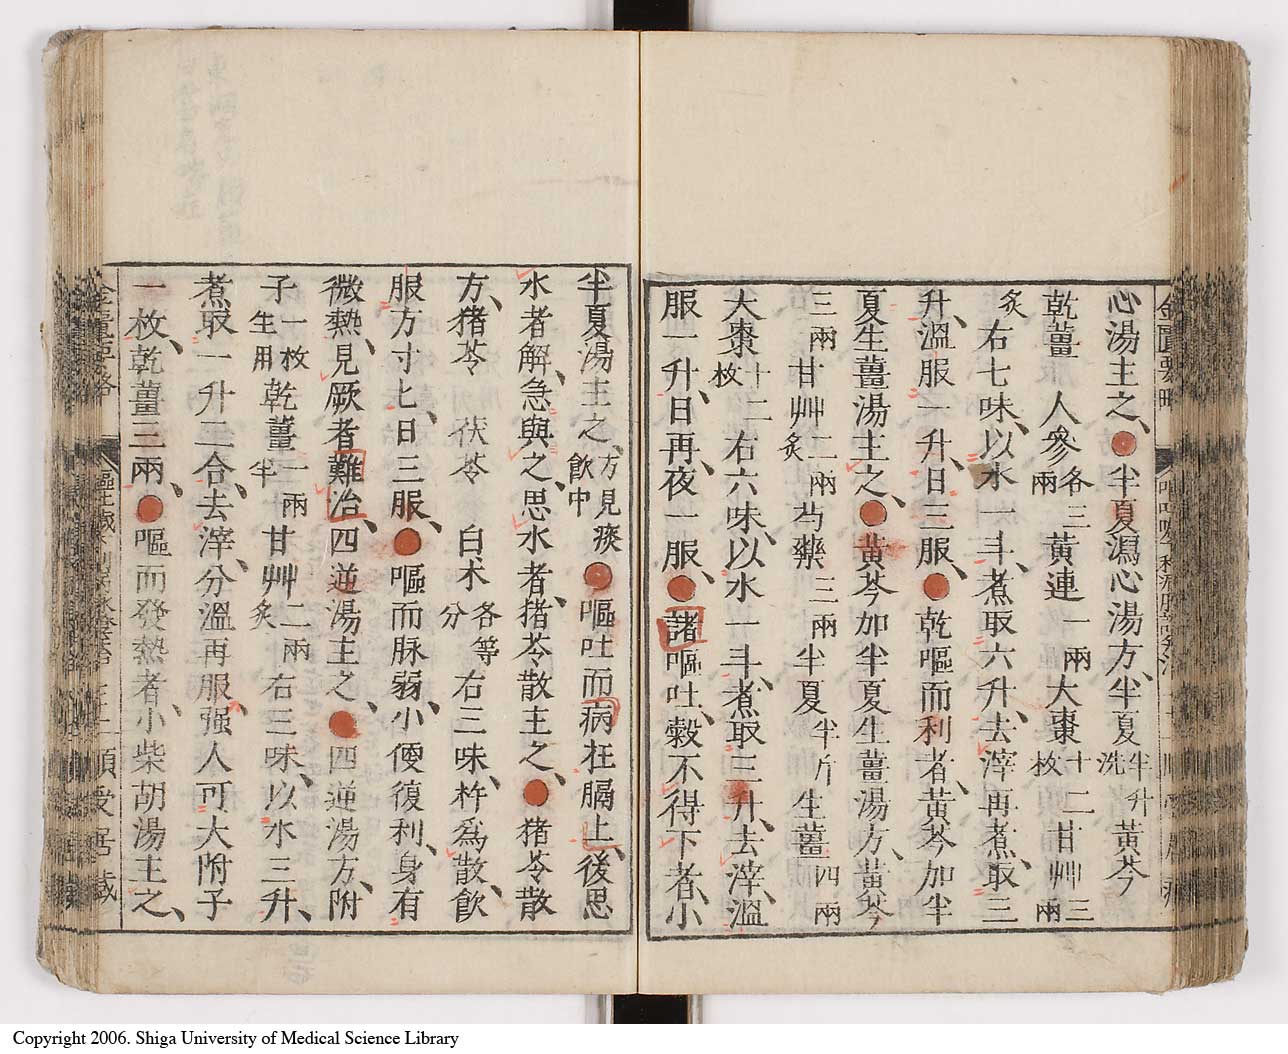 心湯主之、●半夏瀉心湯方、半夏半升洗黃芩
乾薑 人參各三兩黃連一兩大棗十二枚甘艸三兩
炙右七味、以水一斗、煮取六升、去滓再煮、取三
升、溫服一升、日三服、●乾嘔而利者、黃芩加半
夏生薑湯主之、●黃芩加半夏生薑湯方、黃芩
三兩甘艸炙二兩芍藥三兩半夏半斤生薑四兩
大棗十二枚右六味、以水一斗、煮取三升、去滓、溫
服一升、日再、夜一服、●諸嘔吐、穀不得下者、小
半夏湯主之、方見痰飮中●嘔吐而病在膈上、後思
水者解、急與之、思水者、猪苓散主之、●猪苓散
方、猪苓 茯苓 白朮各等分右三味、杵爲散、飮
服方寸七、日三服、●嘔而脉弱、小便復利、身有
微熱、見厥者、難治、四逆湯主之、●四逆湯方、附
子一枚生用乾薑一兩半甘艸二兩炙右三味、以水三升、
煮取一升二合、去滓、分溫再服、强人可大附子
一枚、乾薑三兩、●嘔而發熱者、小柴胡湯主之、
Copyright 2006. Shiga University of Medical Science Library